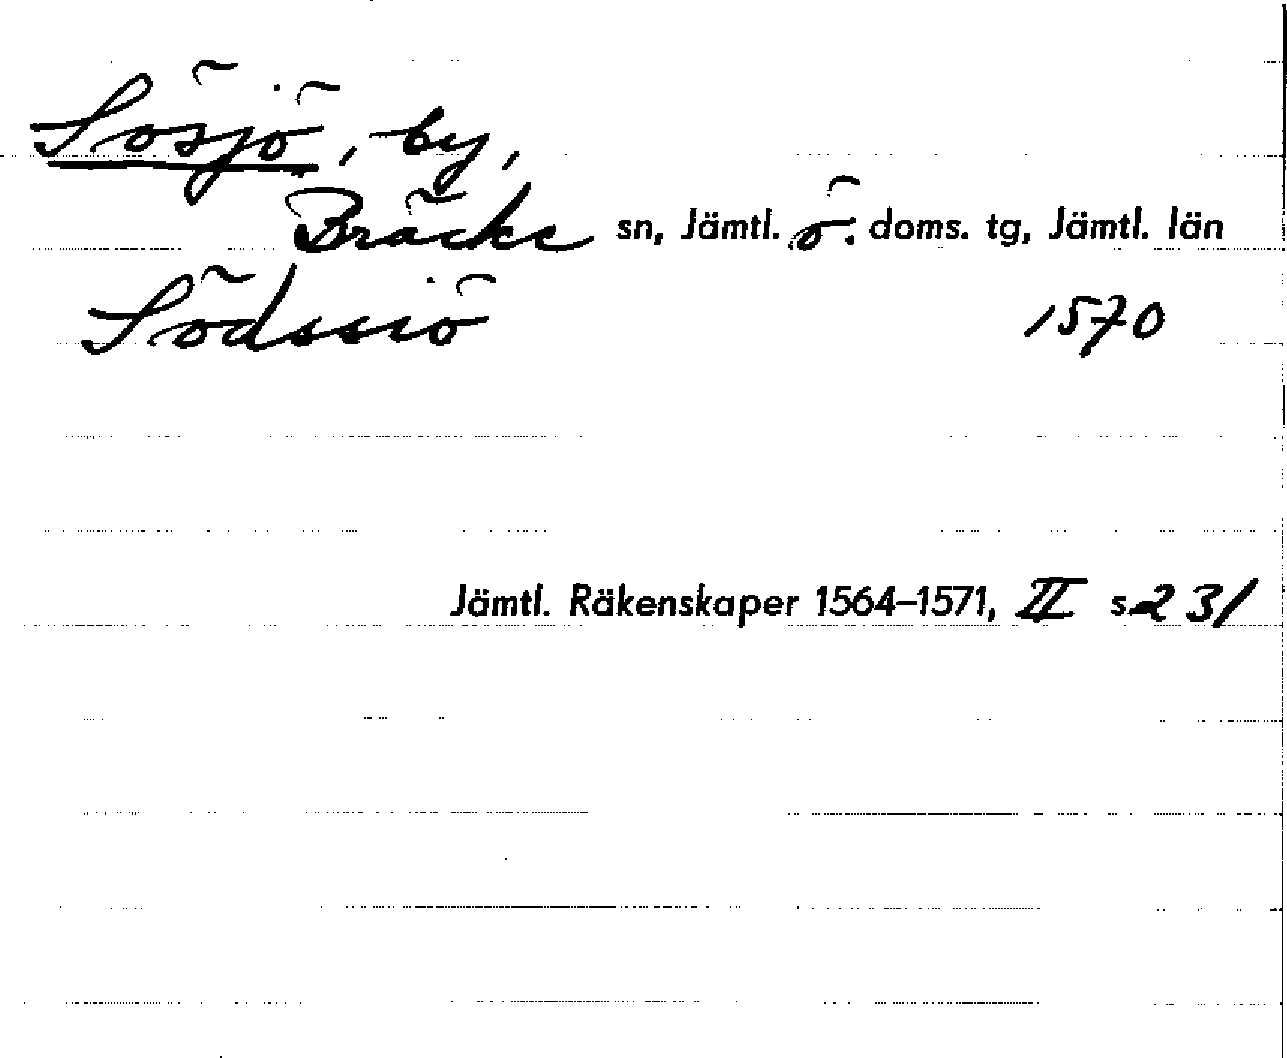 Sösjö, by,
Bräcke sn, Jämtl. ö. doms. tg, Jämtl. län
Södssiö 1570
Jämtl. Räkenskaper 1564–1571, II s. 231